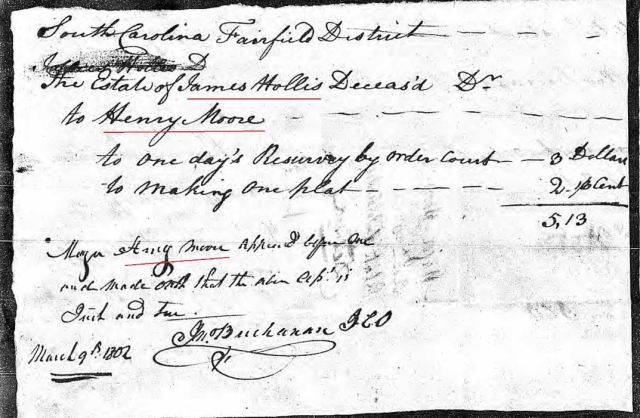 South Carolina Fairfield District
The Estate of James Hollis Deceas'd Dr
to Henry Moore
to one day's Resurvey by order Court — 3 Dollars
to making one plat — 2.13 Cent
5,13
Major Henry Moore appeared before me
and made oath that the above Acpt is
Just and true.
Jno. Buchanan JCO
March 9th 1802